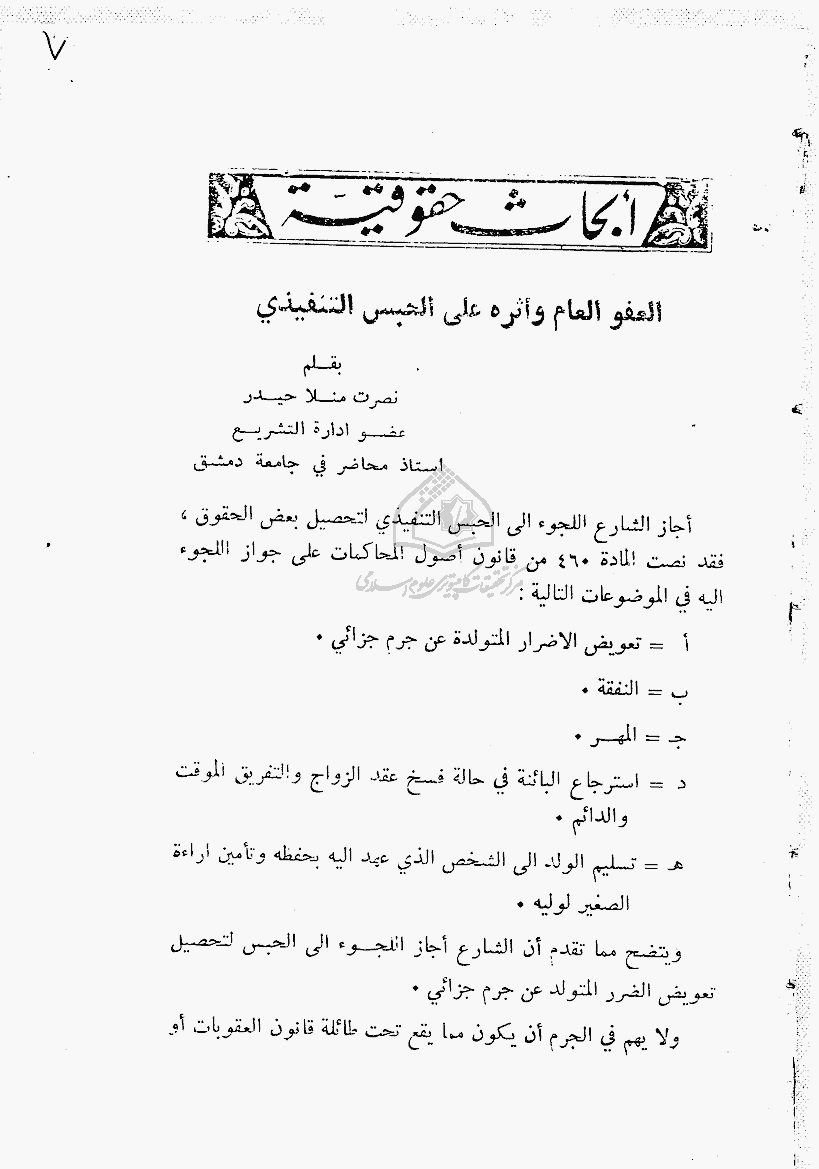 ٧
أبحاث حقوقية
العفو العام وأثره على الحبس التنفيذي
بقـــلم
نصرت منـــلا حيـــدر
عضـــو ادارة التشريـــع
استاذ محاضر في جامعة دمشق
أجاز الشارع اللجوء الى الحبس التنفيذي لتحصيل بعض الحقوق ،
فقد نصت المادة ٤٦٠ من قانون أصول المحاكمات على جواز اللجوء
مركز تحقیقات کامپیوتری علوم اسلامی
اليه في الموضوعات التالية :
أ = تعويض الاضرار المتولدة عن جرم جزائي ٠
ب = النفقة ٠
جـ = المهـــر ٠
د = استرجاع البائنة في حالة فسخ عقد الزواج والتفريق الموقت
والدائم ٠
هـ = تسليم الولد الى الشخص الذي عهد اليه بحفظه وتأمين اراءة
الصغير لوليه ٠
ويتضح مما تقدم أن الشارع أجاز اللجـــوء الى الحبس لتحصيل
تعويض الضرر المتولد عن جرم جزائي ٠
ولا يهم في الجرم أن يكون مما يقع تحت طائلة قانون العقوبات أو